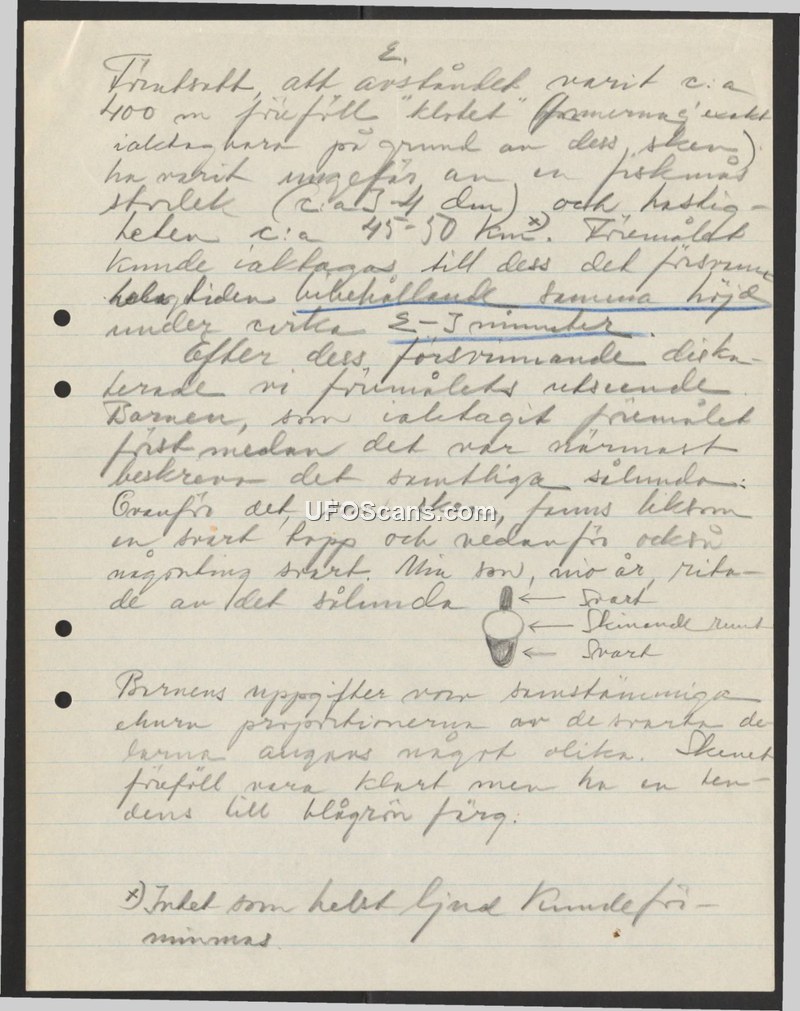 2.
Förutsatt, att avståndet varit c:a
400 m föreföll "klotet" (formerna ej exakt
iakttagbara på grund av dess sken)
ha varit ungefär av en fiskmås
storlek (c:a 3-4 dm) och hastig-
heten c:a 45-50 km x). Föremålet
kunde iakttagas till dess det försvann
hela tiden bibehållande samma höjd
under cirka 2-3 minuter.
Efter dess försvinnande disku-
terade vi föremålets utseende.
Barnen, som iakttagit föremålet
först medan det var närmast
beskrevo det samtliga sålunda:
Ovanför det, fanns liksom
en svart tapp och nedanför också
någonting svart. Min son, nio år, rita-
de av det sålunda
← Svart
← Skinande runt
← Svart
Barnens uppgifter voro samstämmiga
ehuru proportionerna av de svarta de-
larna angavs något olika. Skenet
föreföll vara klart men ha en ten-
dens till blågrön färg.
x) Intet som helst ljud kunde för-
nimmas.
UFOScans.com